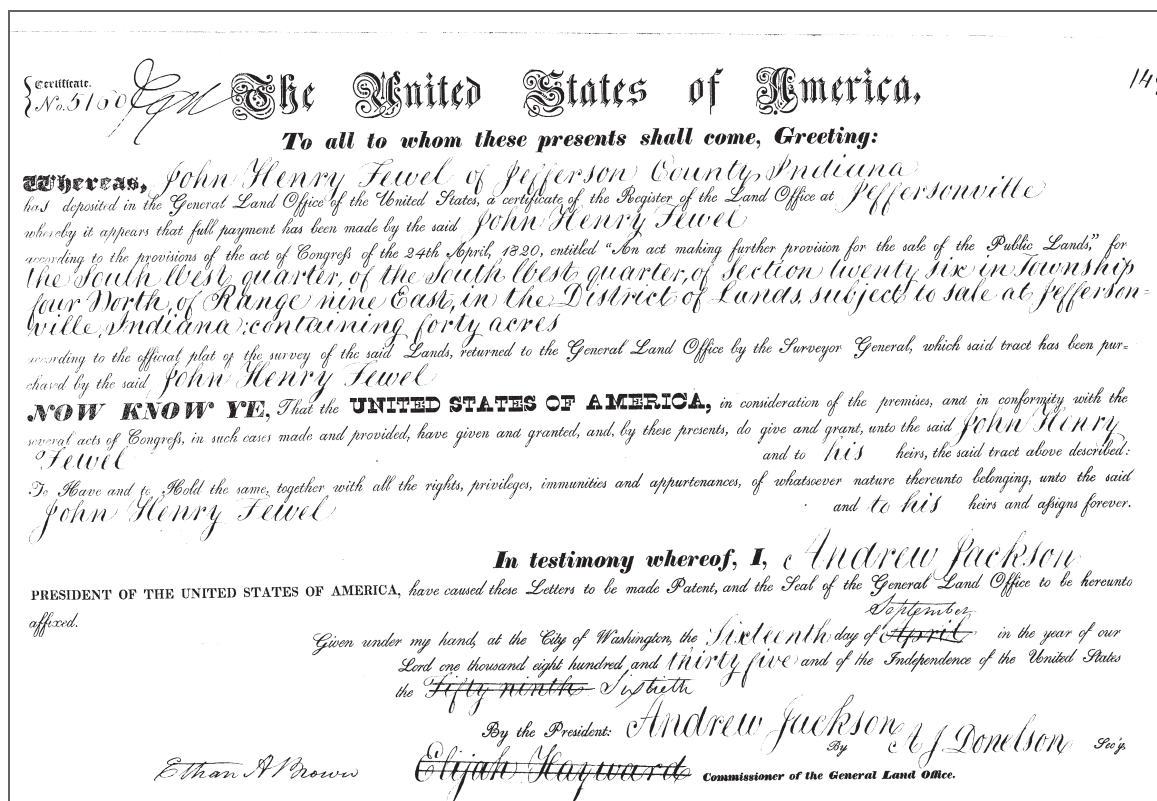 Certificate.
No. 5160 The United States of America, 149
To all to whom these presents shall come, Greeting:
Whereas, John Henry Fewel of Jefferson County, Indiana
has deposited in the General Land Office of the United States, a certificate of the Register of the Land Office at Jeffersonville
whereby it appears that full payment has been made by the said John Henry Fewel
according to the provisions of the act of Congreſs of the 24th April, 1820, entitled "An act making further provision for the sale of the Public Lands," for
the South West quarter, of the South West quarter, of Section twenty six in Township
four North, of Range nine East, in the District of Lands subject to sale at Jefferson=
ville, Indiana; containing forty acres
according to the official plat of the survey of the said Lands, returned to the General Land Office by the Surveyor General, which said tract has been pur=
chased by the said John Henry Fewel
NOW KNOW YE, That the UNITED STATES OF AMERICA, in consideration of the premises, and in conformity with the
several acts of Congreſs, in such cases made and provided, have given and granted, and, by these presents, do give and grant, unto the said John Henry
Fewel and to his heirs, the said tract above described:
To Have and to Hold the same, together with all the rights, privileges, immunities and appurtenances, of whatsoever nature thereunto belonging, unto the said
John Henry Fewel and to his heirs and aſsigns forever.
In testimony whereof, I, Andrew Jackson
PRESIDENT OF THE UNITED STATES OF AMERICA, have caused these Letters to be made Patent, and the Seal of the General Land Office to be hereunto
affixed.
September
Given under my hand, at the City of Washington, the Sixteenth day of April in the year of our
Lord one thousand eight hundred and thirty five and of the Independence of the United States
the Fifty ninth Sixtieth
By the President: Andrew Jackson
By A J Donelson Sec'y.
Ethan A Brown Elijah Hayward Commissioner of the General Land Office.